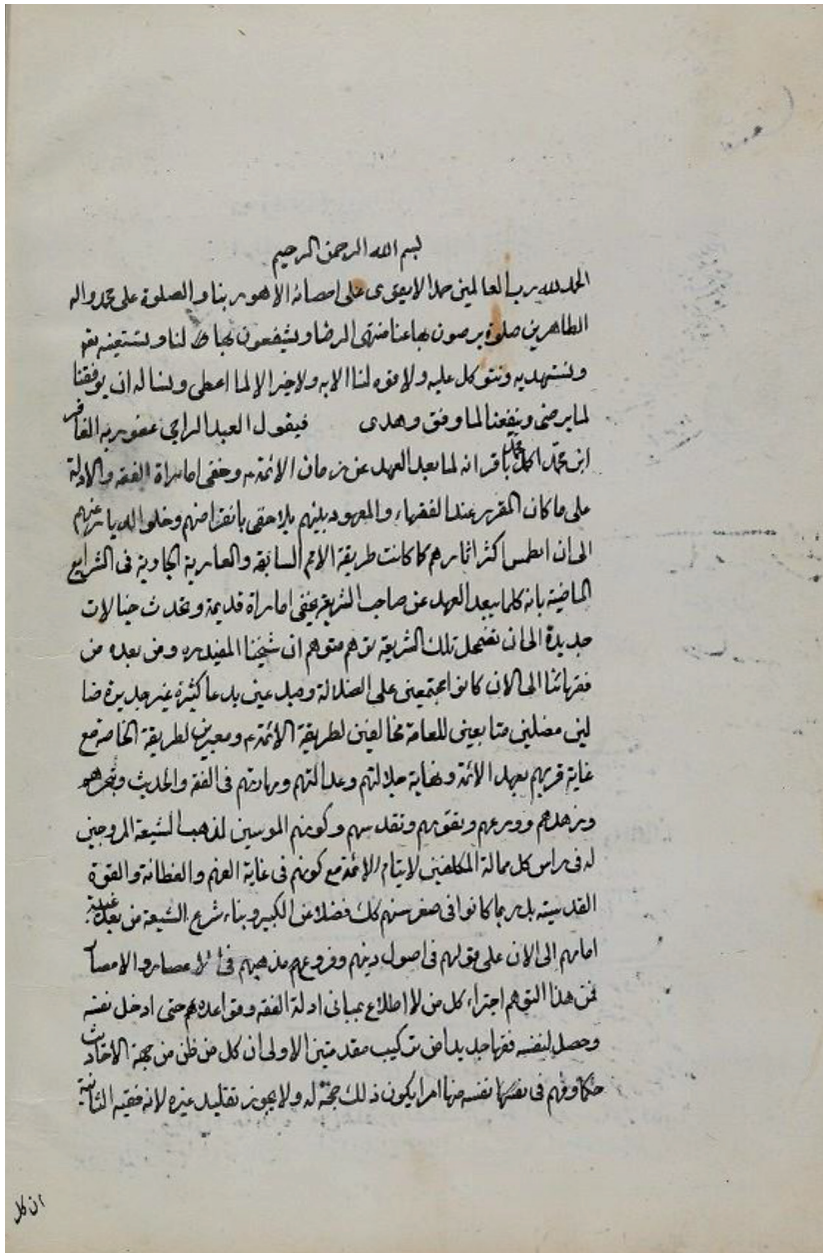 بسم الله الرحمن الرحيم
الحمد لله رب العالمين حمدا لا يقوى على احصائه الا هو ربنا والصلوة على محمد واله
الطاهرين صلوة يرضون بها عنا منتهى الرضا ويشفعون بها لنا ونستعينه
ونستهديه ونتوكل عليه ولا قوة لنا الا به ولا خير الا لما اعطى ونساله ان يوفقنا
لما يرضى وينفعنا لما وفق وهدى فيقول العبد الراجي عفو ربه الغافر
ابن محمد اكمل محمد باقر انه لما بعد العهد عن زمان الائمة ع وخفى امارات الفقه والادلة
على ما كان المقرر عند الفقهاء والمعهود بينهم بلا خفى بانقراضهم وخلو الديار عنهم
الى ان انطمس اكثر اثارهم كما كانت طريقة الامم السابقة والعادية الجارية فى الشرايع
الماضية بانه كلما يبعد العهد عن صاحب الشريعة يخفى امارات قديمة ويحدث خيالات
جديدة الى ان تضمحل تلك الشريعة توهم متوهم ان شيخنا المفيد ره ومن بعده من
فقهائنا الى الان كانوا مجتمعين على الضلالة ومبدعين بدعا كثيرة غير جديرة ضا
لين مضلين متابعين للعامة مخالفين لطريقة الائمة ع ومغيرين لطريقة الخاصة مع
غاية قربهم بعهد الائمة ونهاية جلالتهم وعدالتهم ومهارتهم فى الفقه والحديث وتبحرهم
وزهدهم وورعهم وتقويهم وتقدسهم وكونهم الموسسين لمذهب الشيعة المروجين
له فى راس كل مائة المكلفين لايتام الائمة مع كونهم فى غاية الفهم والفطانة والقوة
القدسيته بل ربما كانوا فى صغر سنهم كك فضلا عن الكبير وبناء شرع الشيعة من بعد غيبة
امامهم الى الان على قولهم فى اصول دينهم وفروع مذهبهم فى الاعصار والامصار
فمن هذا التوهم اجتراء كل من لا اطلاع بمبانى ادلة الفقه وقواعدهم حتى ادخل نفسه
وحصل لنفسه فقها جديدا من تركيب مقدمتين الاولى ان كل من ظن من جهة الاحاديث
حكما وفهم فى نفسها نفسه منها امرا يكون ذلك حجة له ولا يجوز تقليد غيره لانه فقيه الثانية
ان كل